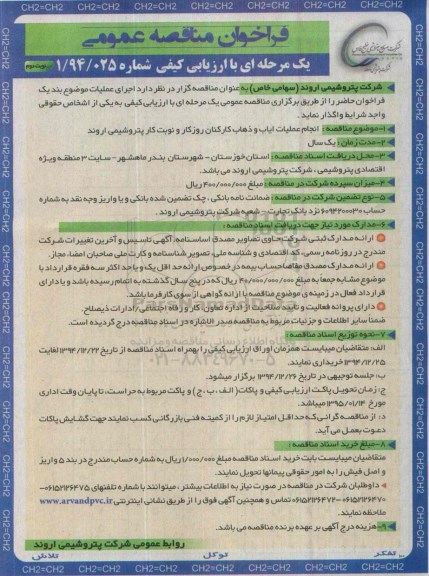 فراخوان مناقصه عمومی
یک مرحله ای با ارزیابی کیفی شماره ۱/۹۴/۰۲۵ نوبت دوم
شرکت پتروشیمی اروند (سهامی خاص) به عنوان مناقصه گزار در نظر دارد اجرای عملیات موضوع بند یک
فراخوان حاضر را از طریق برگزاری مناقصه عمومی یک مرحله ای با ارزیابی کیفی به یکی از اشخاص حقوقی
واجد شرایط واگذار نماید.
۱-موضوع مناقصه : انجام عملیات ایاب و ذهاب کارکنان روزکار و نوبت کار پتروشیمی اروند
۲-مدت زمان : یک سال
۳-محل دریافت اسناد مناقصه : استان خوزستان - شهرستان بندر ماهشهر - سایت ۳ منطقه ویژه
اقتصادی پتروشیمی ، شرکت پتروشیمی اروند می باشد.
۴-میزان سپرده شرکت در مناقصه : مبلغ ۴۰۰/۰۰۰/۰۰۰ ریال
۵-نوع تضمین شرکت در مناقصه : ضمانت نامه بانکی ، چک تضمین شده بانکی و یا واریز وجه نقد به شماره
حساب ۶۰۹۴۲۰۰۰۳۰ نزد بانک تجارت - شعبه شرکت پتروشیمی اروند .
۶-مدارک مورد نیاز جهت دریافت اسناد مناقصه :
ارائه مدارک ثبتی شرکت حاوی تصاویر مصدق اساسنامه، آگهی تاسیس و آخرین تغییرات شرکت
مندرج در روزنامه رسمی، کد اقتصادی و شناسه ملی، تصویر شناسنامه و کارت ملی صاحبان امضاء مجاز.
ارائه مدارک مصدق مفاصاحساب بیمه در خصوص ارائه حداقل یک و یا حداکثر سه فقره قرارداد با
موضوع مشابه جمعا به مبلغ ۴۰/۰۰۰/۰۰۰/۰۰۰ ریال که در پنج سال گذشته به اتمام رسیده باشد و یا دارای
قرارداد فعال در زمینه ی موضوع مناقصه با ارائه گواهی از سوی کارفرما باشد.
دارای پروانه فعالیت و تایید صلاحیت از اداره تعاون، کار و رفاه اجتماعی/ادارات ذیصلاح.
ضمنا سایر اطلاعات و جزئیات مربوط به مناقصه صدر الاشاره در اسناد مناقصه درج گردیده است.
۷-نحوه توزیع اسناد مناقصه :
الف: متقاضیان میبایست همزمان اوراق ارزیابی کیفی را بهمراه اسناد مناقصه از تاریخ ۱۳۹۴/۱۲/۲۲ لغایت
۱۳۹۴/۱۲/۲۵ خریداری نمایند.
ب: جلسه توجیهی در تاریخ ۱۳۹۴/۱۲/۲۶ برگزار میشود.
ج: زمان تحویل پاکت ارزیابی کیفی و پاکات ( الف ، ب ، ج ) و پاکت مربوط به حراست، تا پایان وقت اداری
مورخ ۱۳۹۵/۰۱/۱۴ میباشد.
د: از مناقصه گرانی که حداقل امتیاز لازم را از کمیته فنی بازرگانی کسب نمایند جهت گشایش پاکات
دعوت بعمل می آید.
۸-مبلغ خرید اسناد مناقصه :
متقاضیان میبایست بابت خرید اسناد مناقصه مبلغ ۱/۰۰۰/۰۰۰ ریال به شماره حساب مندرج در بند ۵ واریز
و اصل فیش را به امور حقوقی پیمانها تحویل نمایند.
داوطلبان شرکت در مناقصه در صورت نیاز به اطلاعات بیشتر، میتوانند با شماره تلفنهای ۰۶۱۵۲۱۲۶۴۷۵-
۰۶۱۵۲۱۲۶۴۷۲-۰۶۱۵۲۱۲۶۴۷۰ تماس و همچنین آگهی فوق را از طریق نشانی اینترنتی www.arvandpvc.ir
ملاحظه نمایند.
۹-هزینه درج آگهی بر عهده برنده مناقصه می باشد.
روابط عمومی شرکت پتروشیمی اروند
تفکر توکل تلاش